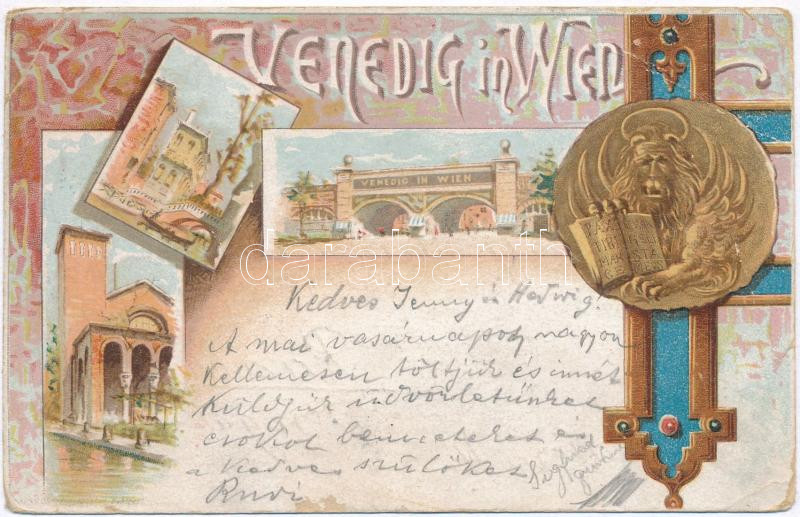 VENEDIG in WIEN
VENEDIG IN WIEN
PAX
TIBI
MAR
CE
darabanth
Kedves Jenny és Hedwig!
A mai vasárnapot nagyon
kellemesen töltjük és innét
küldjük üdvözletünket
csókol benneteket és
a kedves szülőket
Rudi